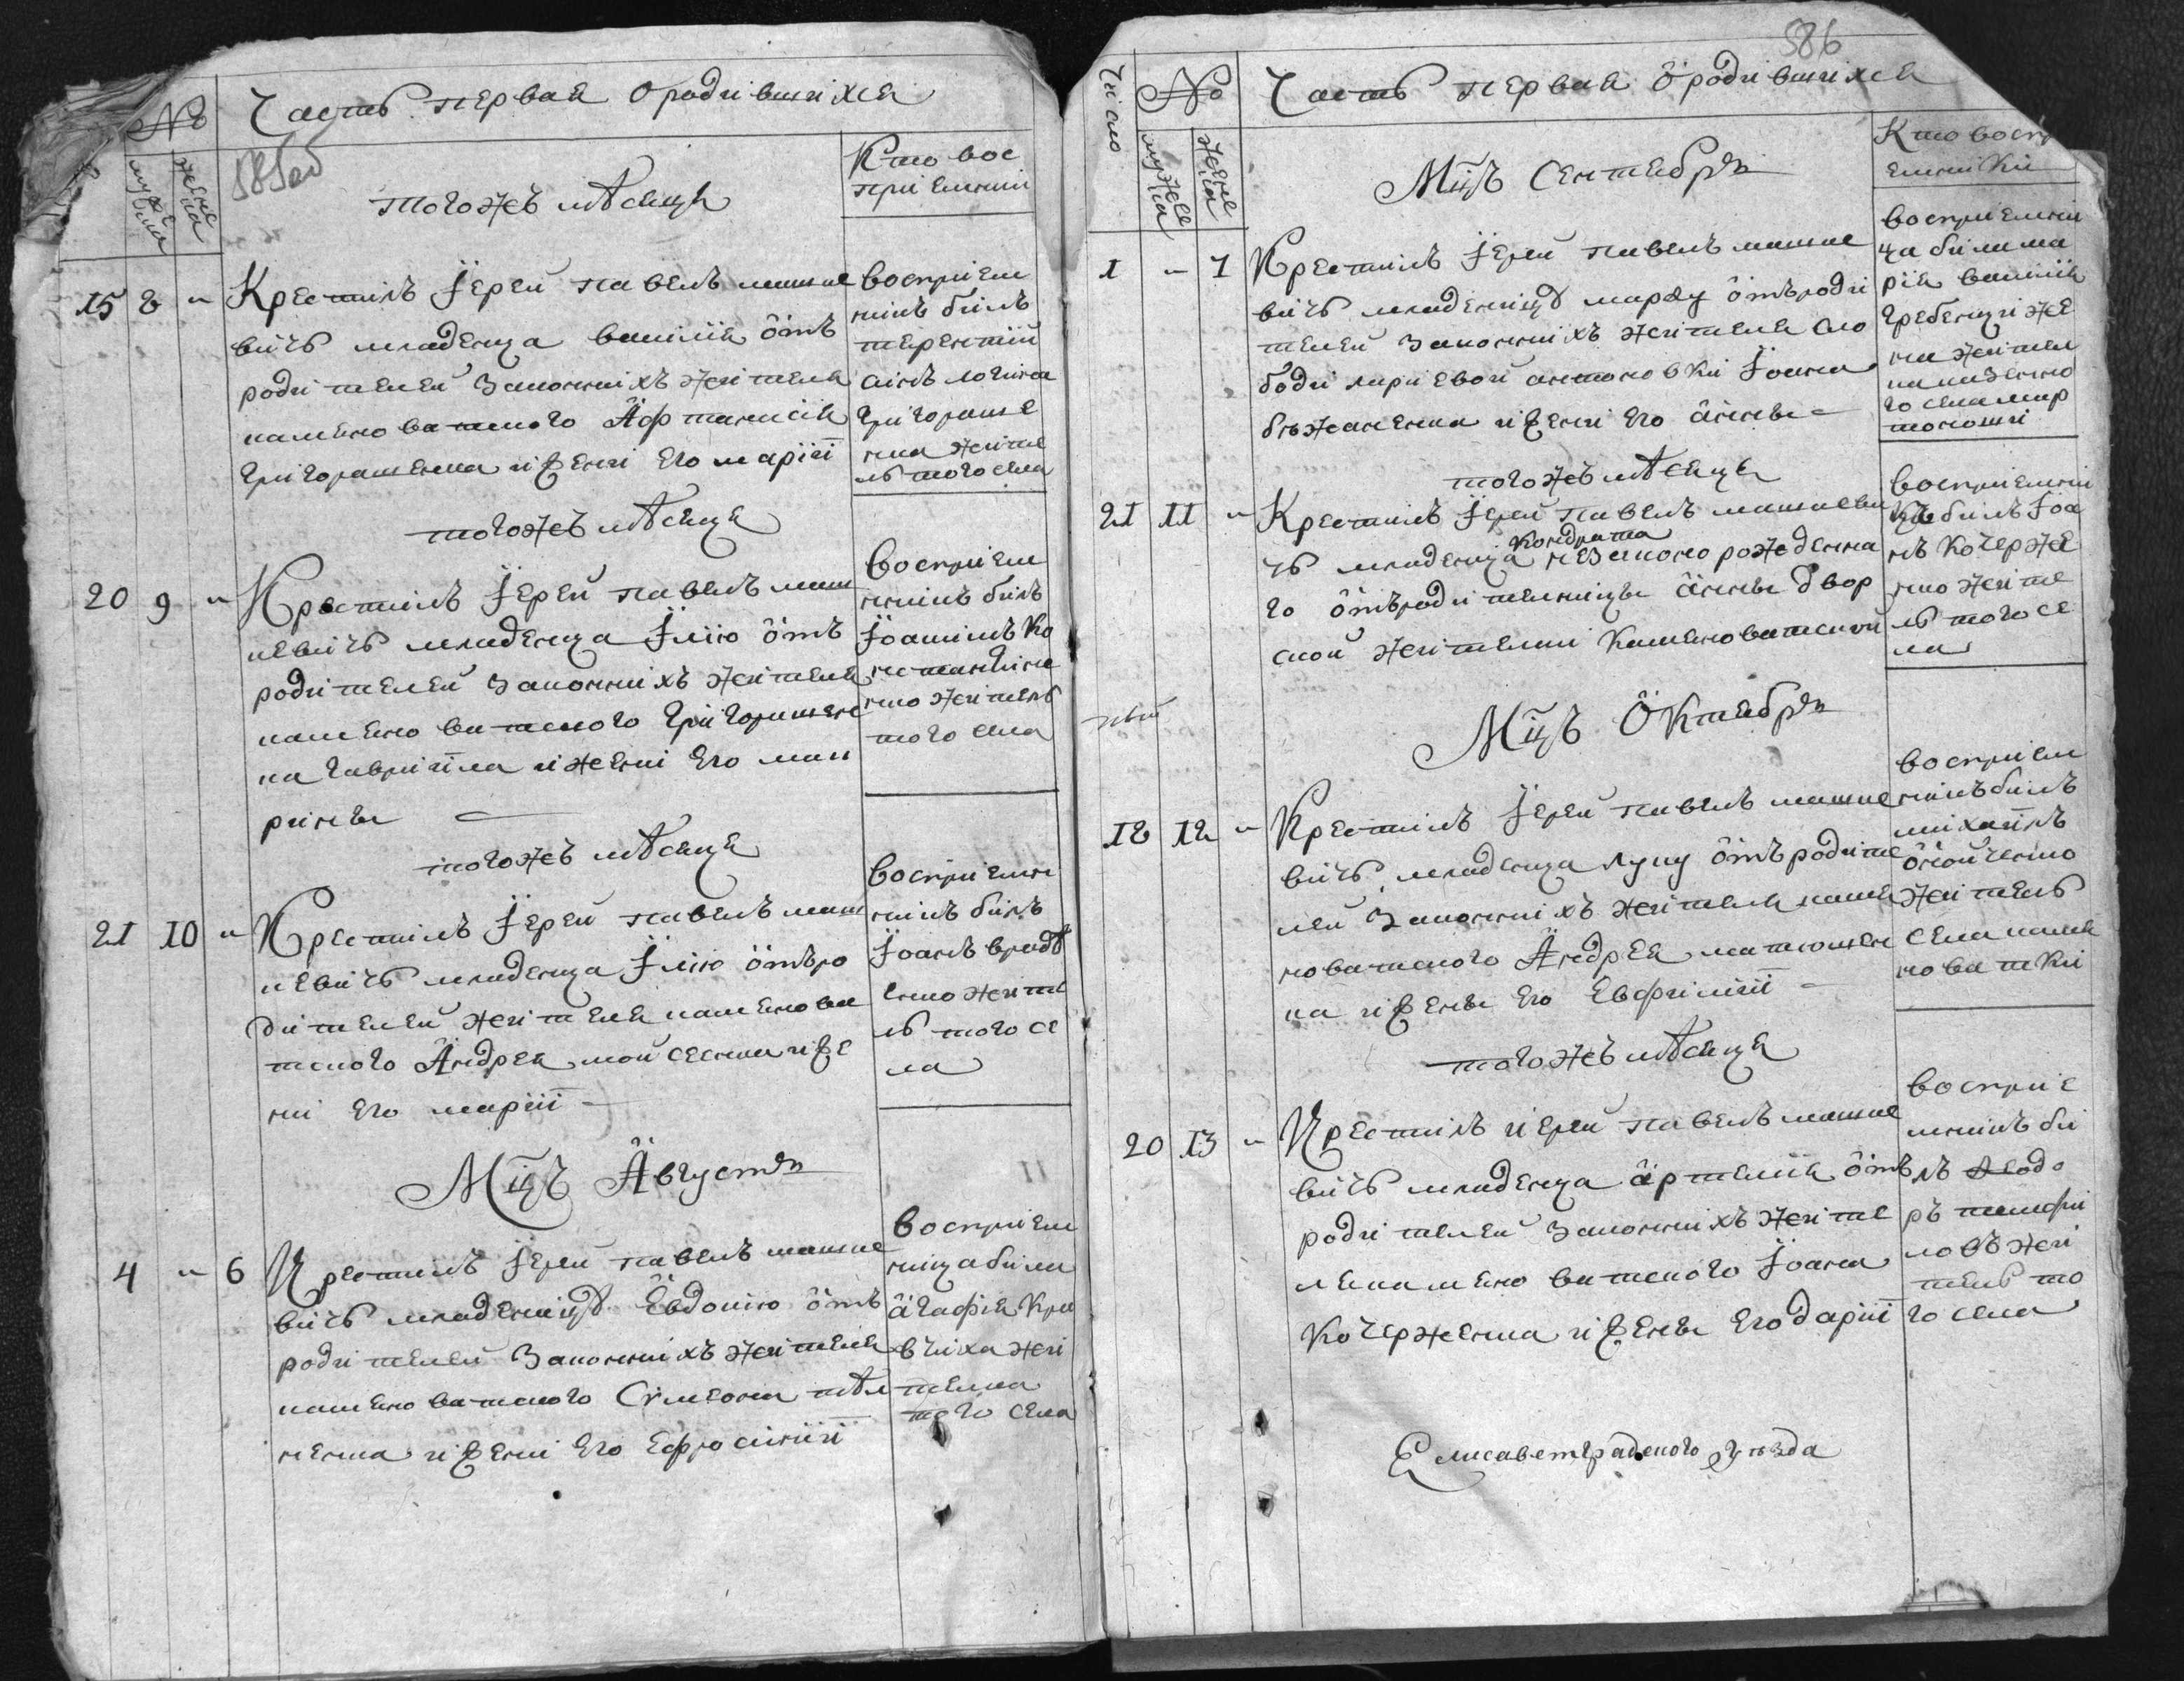 № Часть первая о родившихся
585об
мужеска
женска
Кто вос
приемникъ
тогожъ мѣсяца
15 8 " Крестилъ Іерей павелъ матие
вичъ младенца василія ѿтъ
родителей законнихъ жителя
каменоватского Афтанасія
Григорашенка и жени Его маріи
восприем
никъ билъ
терентій
синъ логина
Григораше
нка жите
ль того села
тогожъ мѣсяца
20 9 " Крестилъ Іерей павелъ мат
иевичъ младенца Іллію ѿтъ
родителей законнихъ жителя
каменоватского Григорашен
ка гавриила и жени Его мат
рини
восприем
никъ билъ
Іоакимъ Ко
нстантине
нко житель
того села
тогожъ мѣсяца
21 10 " Крестилъ Іерей павелъ мат
иевичъ младенца Іллію ѿтъ ро
дителей жителя каменова
тского Андрея мойсеенка и же
ни Его маріи
восприемн
никъ билъ
Іоанъ
енко жите
ль того се
ла
Мцъ Августъ
4 " 6 Крестилъ Іерей павелъ матие
вичъ младеницу Евдокію ѿтъ
родителей законнихъ жителя
каменоватского Сѵмеона
ненка и жени Его Ефросиніи
восприем
ница била
агафія Кра
вчиха жи
телка
того села
586
Число № Часть первая о родившихся
мужеска
женска
Кто воспр
емники
Мцъ Сентебря
1 " 7 Крестилъ Іерей павелъ матие
вичъ младеницу марѳу ѿтъ роди
телей законнихъ жителя сло
боди антоновки Іоана
бѣжаненка и жени Его аннъ
восприемни
ца била ма
рія василія
Гребенци же
на жител
ка казенно
го села мар
тоноши
тогожъ мѣсяца
21 11 " Крестилъ Іерей павелъ матиеви
чъ младенца Кондрата незаконо рожденна
го ѿтъ родителницы анны двор
ской жителки Каменоватской
восприемни
къ билъ Іоа
нъ Кочерже
нко жите
ль того се
ла
Мцъ Октебря
12 12 " Крестилъ Іерей павелъ матие
вичъ младенца луку ѿтъ родите
лей законнихъ жителя каме
новатского Андрея матюшен
ка и жены Его Евфиміи
восприем
никъ билъ
михаилъ
онойченко
житель
села каме
новатки
тогожъ мѣсяца
20 13 " Крестилъ иерей павелъ матие
вичъ младенца артемія ѿтъ
родителей законнихъ жите
ля каменоватского Іоана
Кочерженка и жены Его даріи
восприе
мникъ би
лъ ѳедо
ръ памфи
ловъ жи
тель то
го села
Елисаветградского уѣзда